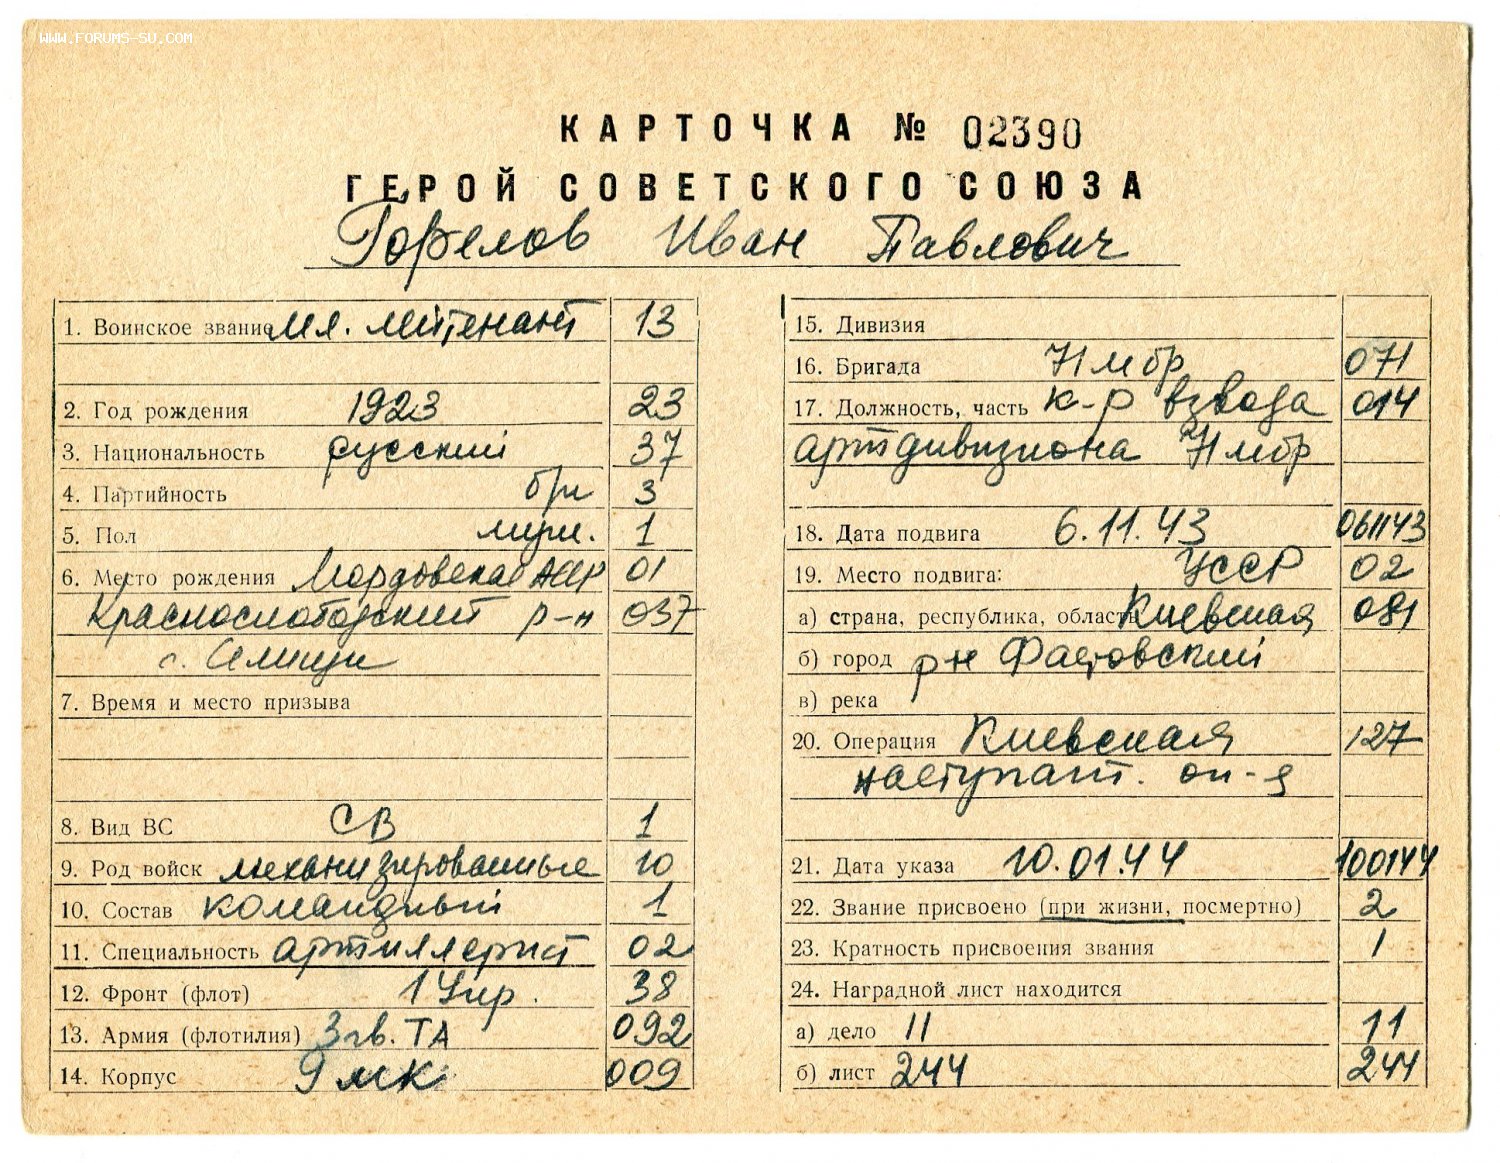 WWW.FORUMS-SU.COM
КАРТОЧКА № 02390
ГЕРОЙ СОВЕТСКОГО СОЮЗА
Горелов Иван Павлович
1. Воинское звание мл. лейтенант 13
2. Год рождения 1923 23
3. Национальность русский 37
4. Партийность б/п 3
5. Пол муж. 1
6. Место рождения Мордовская АССР 01
Краснослободский р-н 037
с.
7. Время и место призыва
8. Вид ВС СВ 1
9. Род войск механизированные 10
10. Состав командный 1
11. Специальность артиллерист 02
12. Фронт (флот) 1 Укр. 38
13. Армия (флотилия) 3 гв. ТА 092
14. Корпус 9 мк 009
15. Дивизия
16. Бригада 71 мбр 071
17. Должность, часть к-р взвода 014
артдивизиона 71 мбр
18. Дата подвига 6.11.43 061143
19. Место подвига: УССР 02
а) страна, республика, область Киевская 081
б) город р-н Фастовский
в) река
20. Операция Киевская 127
наступат. оп-я
21. Дата указа 10.01.44 100144
22. Звание присвоено (при жизни, посмертно) 2
23. Кратность присвоения звания 1
24. Наградной лист находится
а) дело 11 11
б) лист 244 244